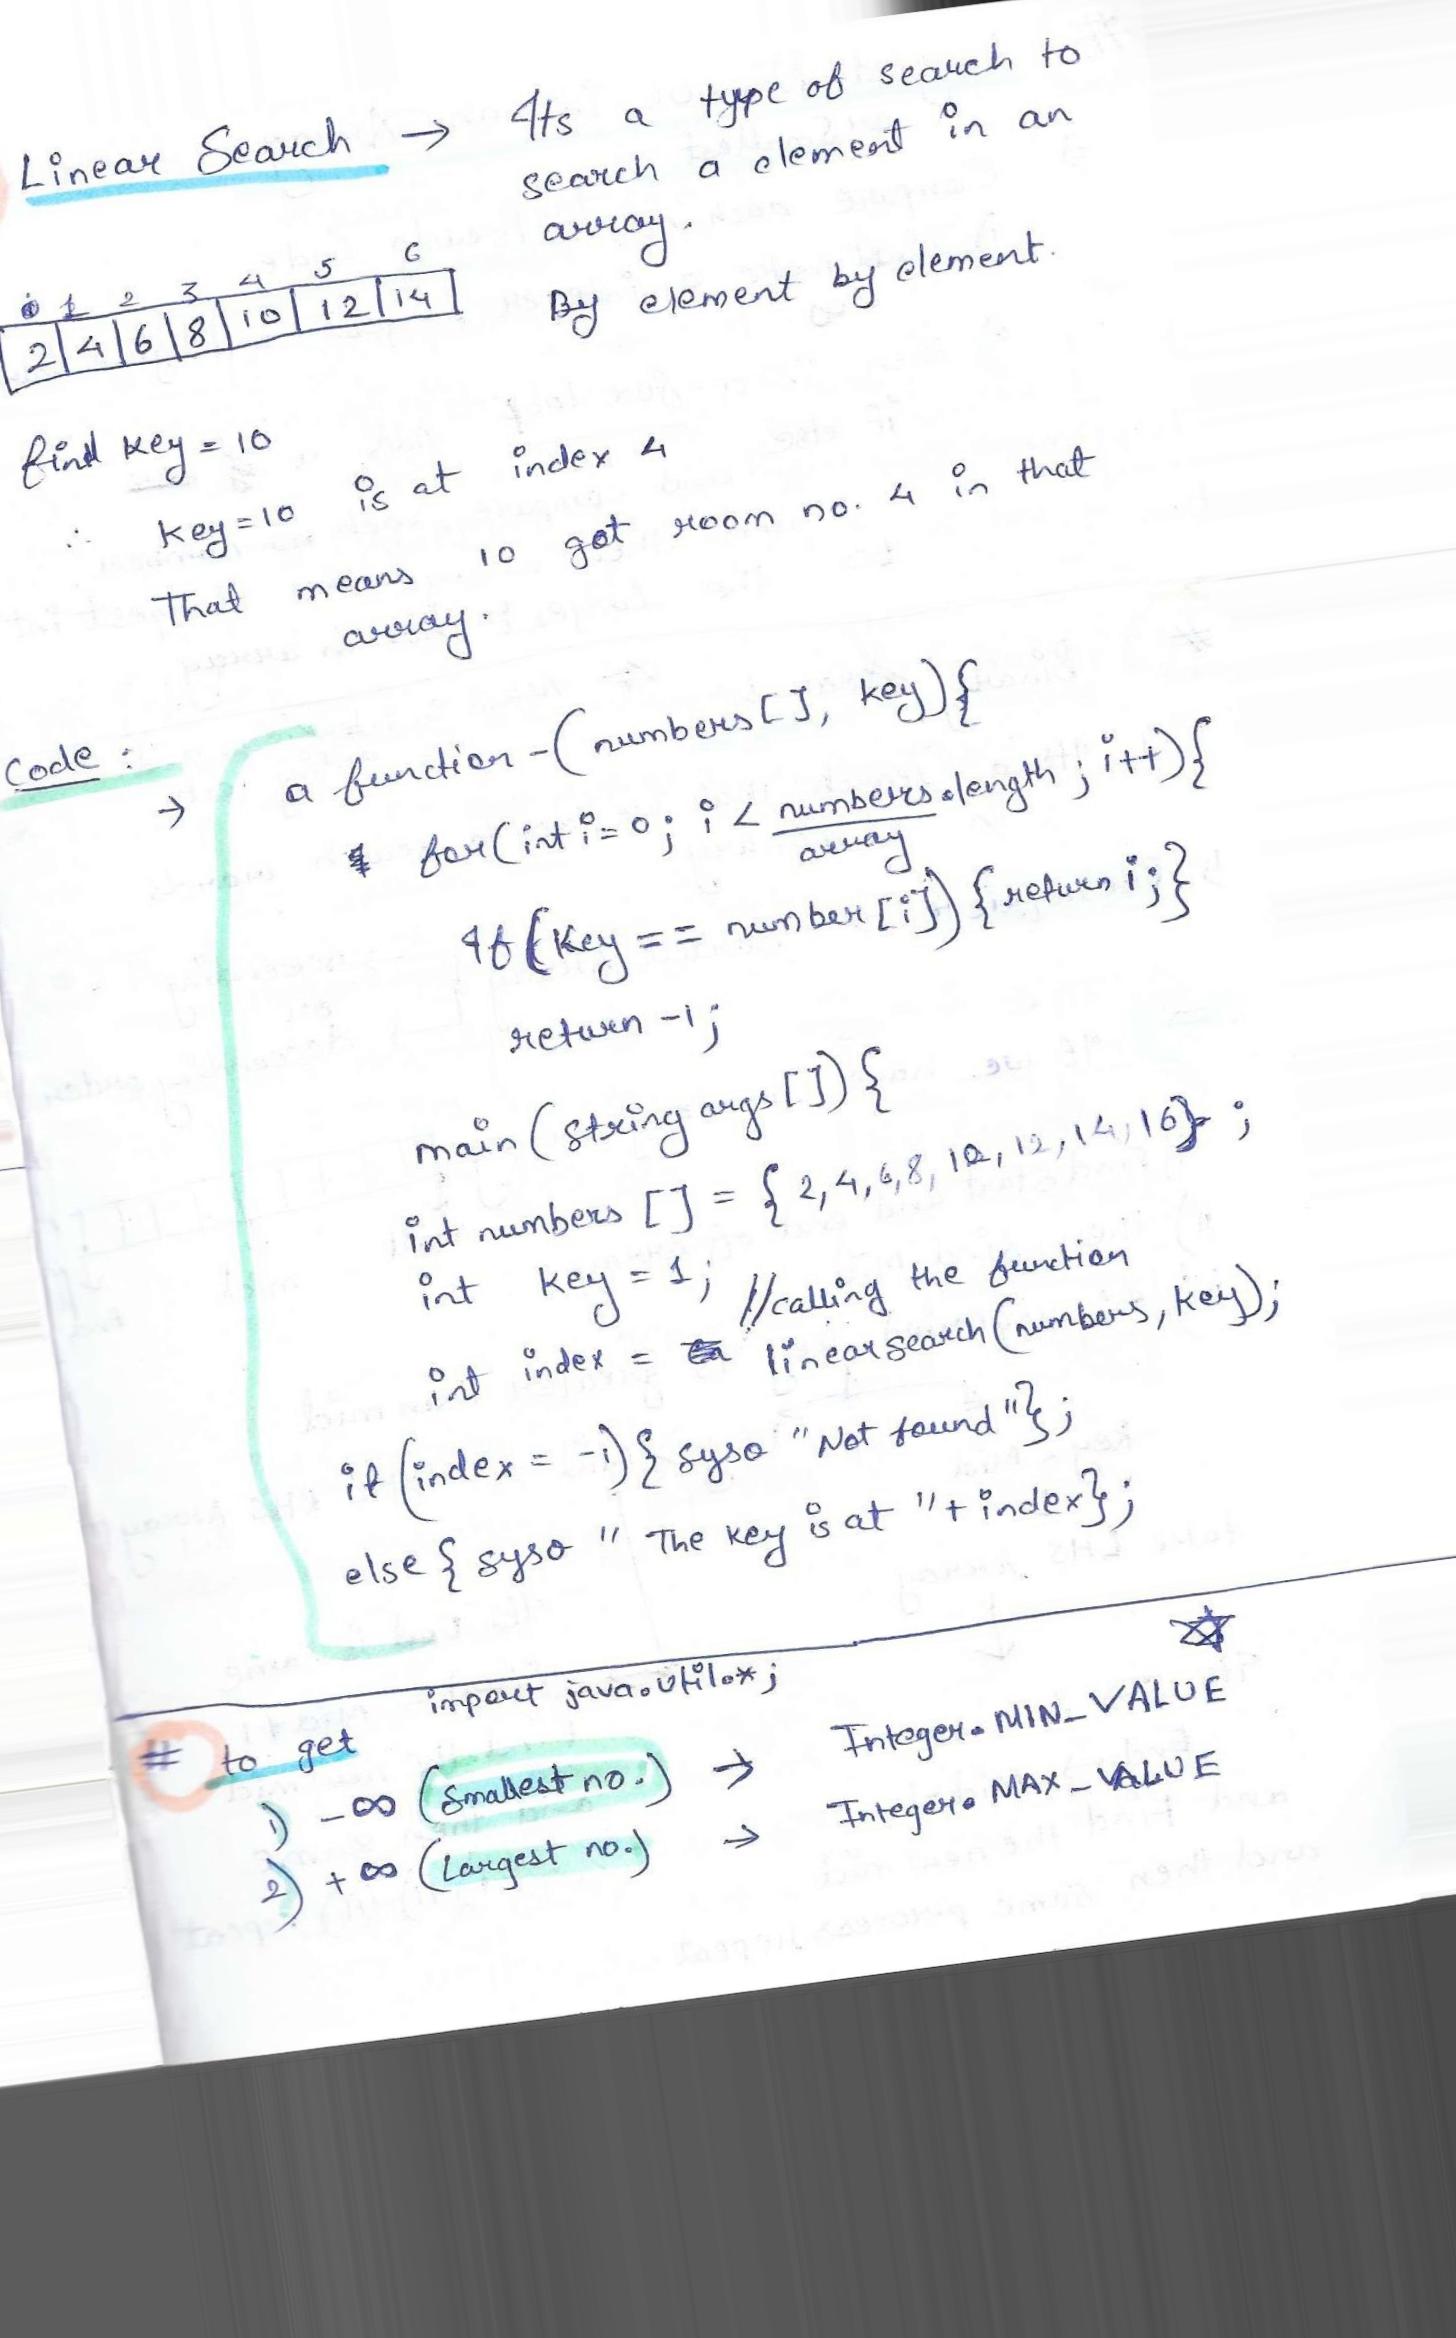 Linear Search → Its a type of search to
search a element in an
array.
By element by element.
0 1 2 3 4 5 6
2 4 6 8 10 12 14
find key = 10
∴ key=10 is at index 4
That means 10 got room no. 4 in that
array.
Code :
→ a function-(numbers[], key){
for(int i=0; i < numbers.length; i++){
array
If(Key == number[i]){return i;}
return -1;
main(string args[]){
int numbers [] = {2,4,6,8,10,12,14,16};
int key = 1; //calling the function
int index = linearsearch(numbers, key);
if (index = -1){ syso "Not found"};
else { syso " The key is at "+index};
import java.util.*;
# to get
1) -∞ (Smallest no.) → Integer.MIN_VALUE
2) +∞ (Largest no.) → Integer.MAX_VALUE